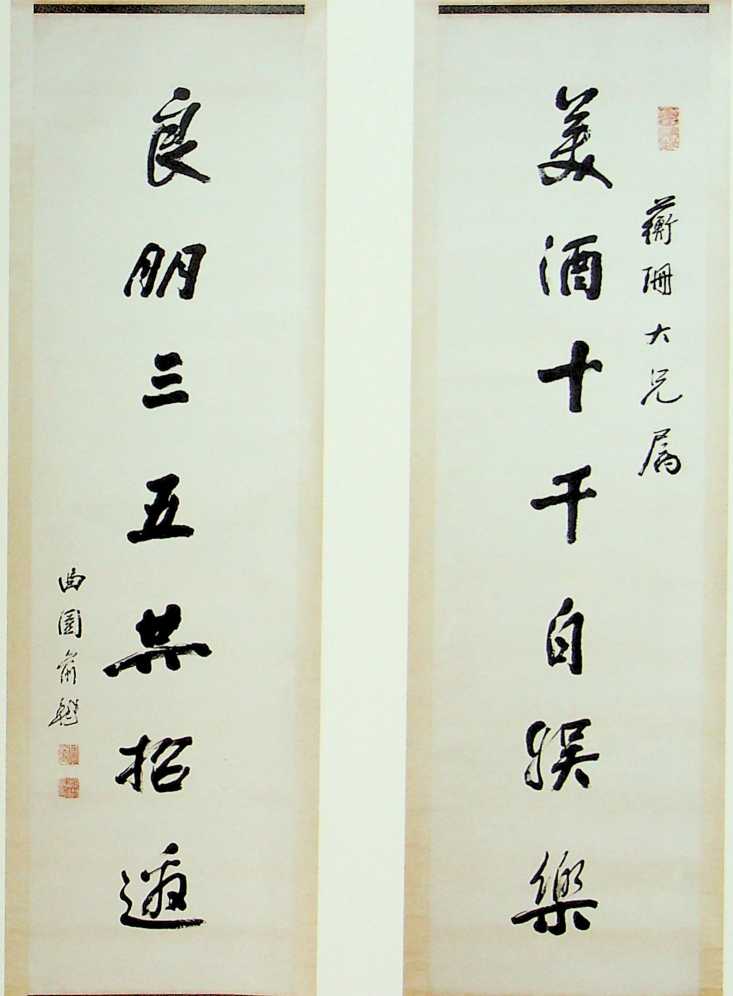 蘅珊大兄屬
美酒十千自娛樂
良朋三五共招邀
曲園俞樾